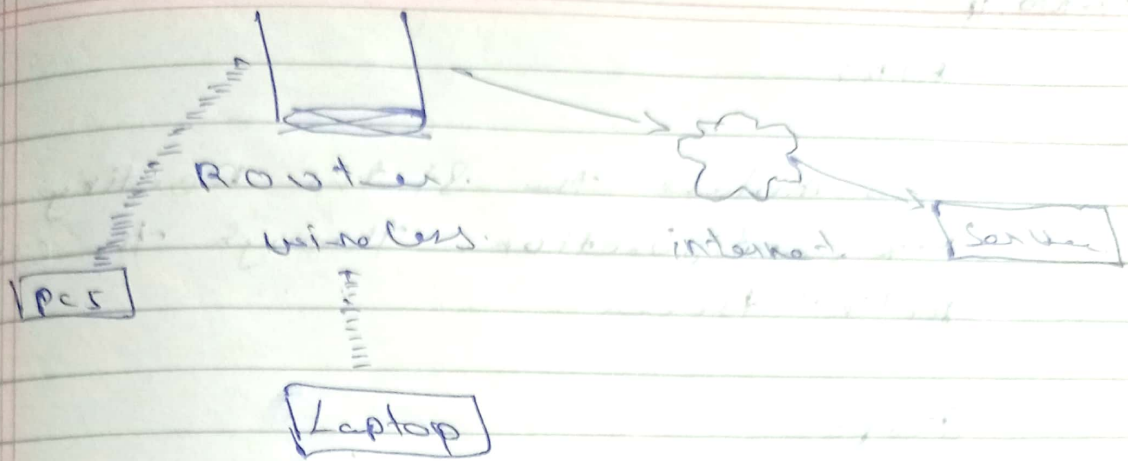 Router
wireless
internet
Server
PCs
Laptop